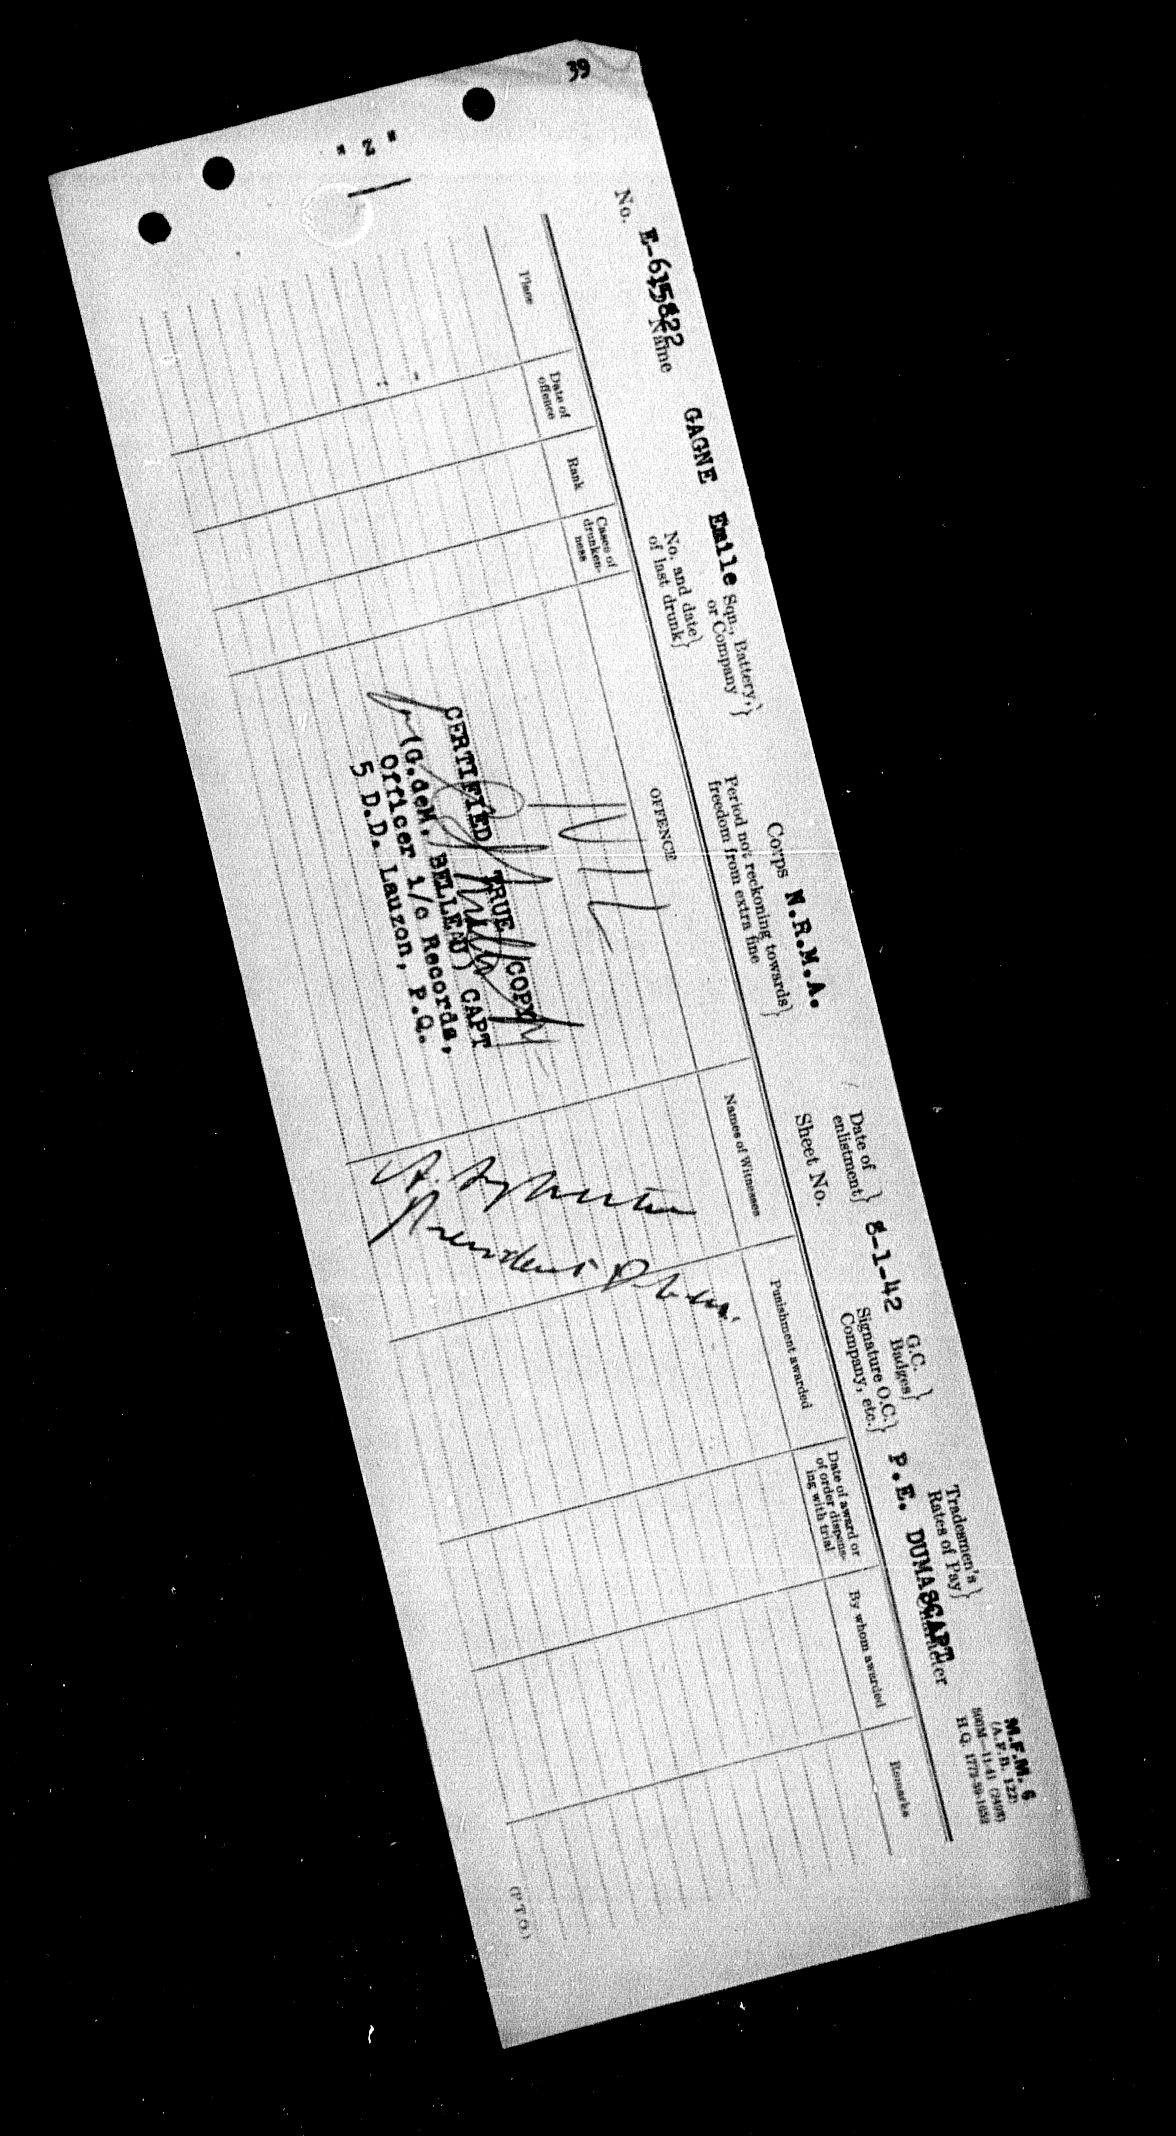 39
" Z "
M.F.M. 6
(A.F.B. 122)
500M—11-41 (2408)
H.Q. 1772-39-1652
No. E-615822 Name GAGNE Emile Sqn., Battery, or Company} Corps N.R.M.A. Date of enlistment} 8-1-42 G.C. Badges} Tradesmen's Rates of Pay}
No. and date of last drunk} Period not reckoning towards freedom from extra fine} Sheet No. Signature O.C. Company, etc.} P.E. DUMAS CAPT Character
Place Date of offence Rank Cases of drunken-ness OFFENCE Names of Witnesses Punishment awarded Date of award or of order dispens-ing with trial By whom awarded Remarks
NIL
CERTIFIED TRUE COPY
(G.deM. BELLEAU) CAPT
Officer i/c Records,
5 D.D. Lauzon, P.Q.
(P.T.O.)